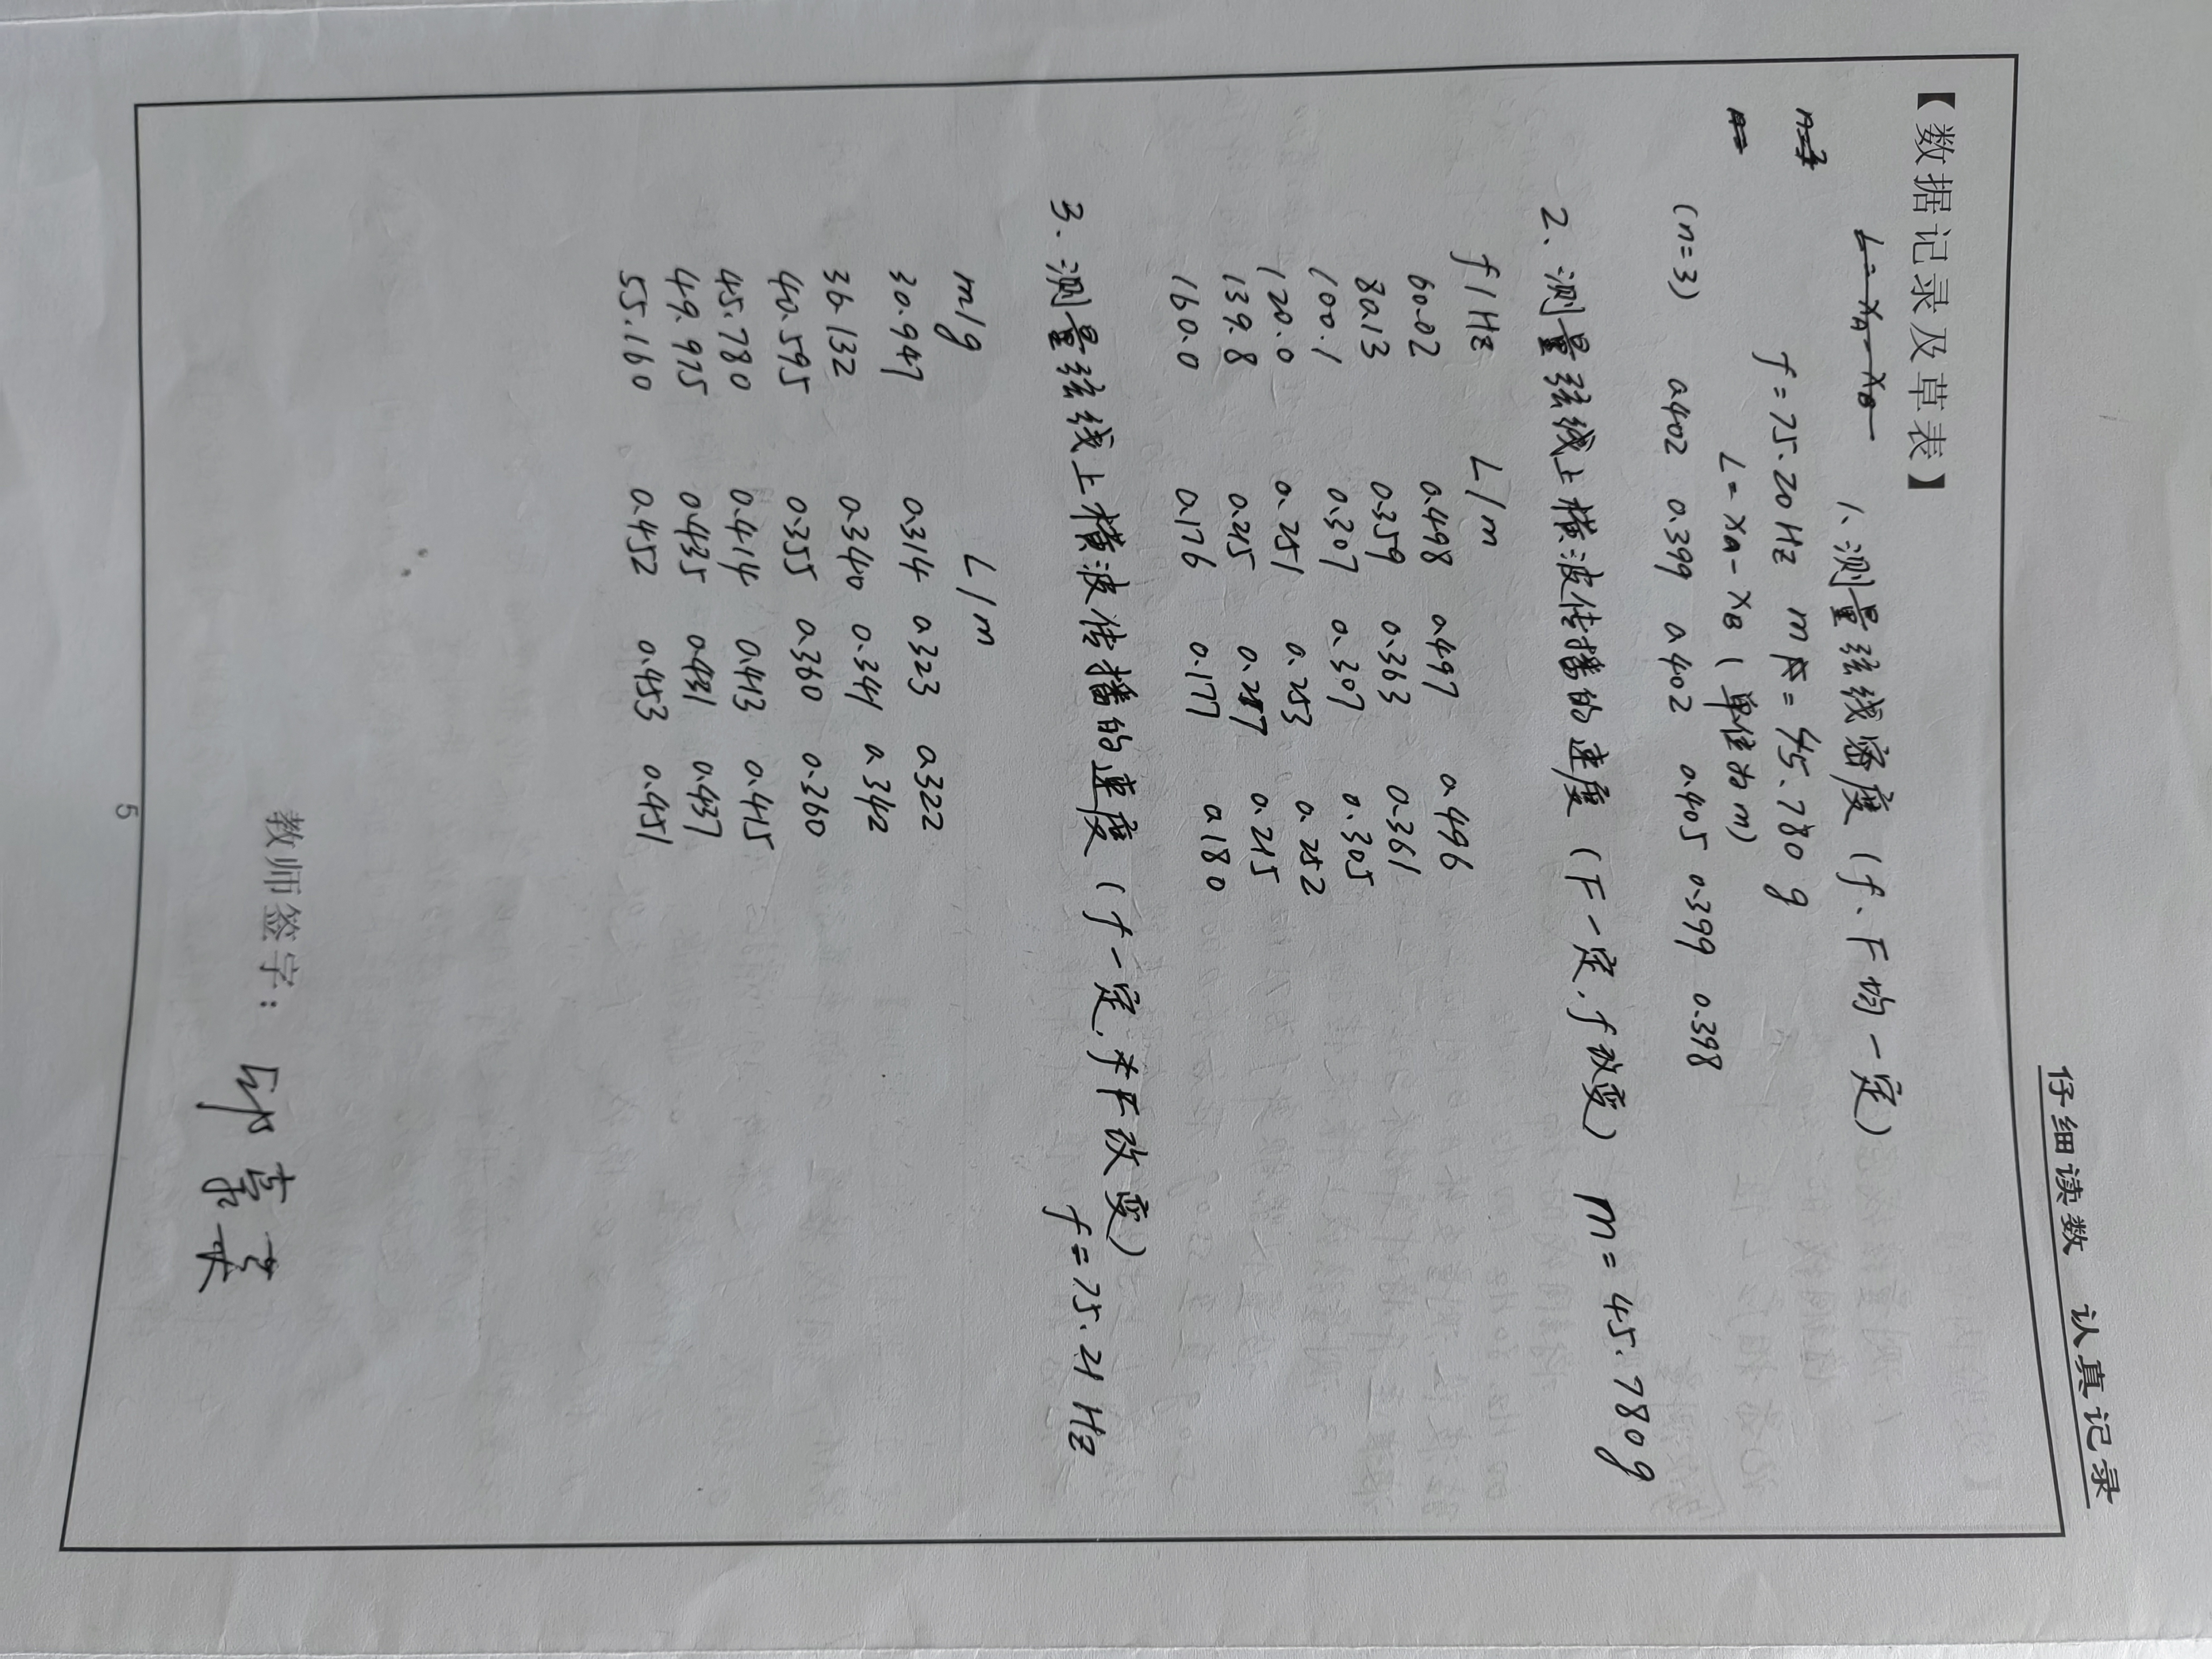 仔细读数 认真记录
【数据记录及草表】
L=xA-xB 1、测量弦线密度(f、F均一定)
n=3 f=75.20Hz m=45.780g
n= L=xA-xB(单位为m)
(n=3) 0.402 0.399 0.402 0.405 0.399 0.398
2、测量弦线上横波传播的速度(F一定,f改变) m=45.780g
f/Hz L/m
60.02 0.498 0.497 0.496
80.13 0.359 0.363 0.361
100.1 0.307 0.307 0.305
120.0 0.251 0.253 0.252
139.8 0.215 0.217 0.215
160.0 0.176 0.177 0.180
3、测量弦线上横波传播的速度(f一定,F改变) f=75.21Hz
m/g L/m
30.947 0.314 0.323 0.322
36.132 0.340 0.341 0.342
40.595 0.355 0.360 0.360
45.780 0.414 0.413 0.415
49.975 0.435 0.431 0.437
55.160 0.452 0.453 0.451
教师签字:
5